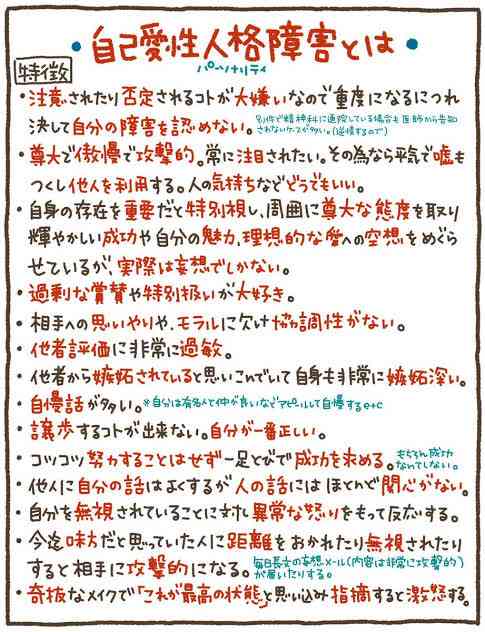 ・自己愛性人格障害とは・
パーソナリティ
特徴
・注意されたり否定されるコトが大嫌いなので重度になるにつれ
決して自分の障害を認めない。別件で精神科に通院している場合も医師から告知
されないケースが多い。(逆憎するので)
・尊大で傲慢で攻撃的。常に注目されたい。その為なら平気で嘘も
つくし他人を利用する。人の気持ちなどどうでもいい。
・自身の存在を重要だと特別視し、周囲に尊大な態度を取り
輝やかしい成功や自分の魅力、理想的な愛への空想をめぐら
せているが、実際は妄想でしかない。
・過剰な賞賛や特別扱いが大好き。
・相手への思いやりや、モラルに欠け協調性がない。
・他者評価に非常に過敏。
・他者から嫉妬されていると思いこんでいて自身も非常に嫉妬深い。
・自慢話が多い。*自分は有名人と仲が良いなどアピールして自慢するetc
・譲歩するコトが出来ない。自分が一番正しい。
・コツコツ努力することはせず一足とびで成功を求める。もちろん成功
なんてしない。
・他人に自分の話はよくするが人の話にはほとんど関心がない。
・自分を無視されていることに対し異常な怒りをもって反応する。
・今迄味方だと思っていた人に距離をおかれたり無視されたり
すると相手に攻撃的になる。毎日長文の妄想メール(内容は非常に攻撃的)
が届いたりする。
・奇抜なメイクで「これが最高の状態」と思い込み指摘すると激怒する。